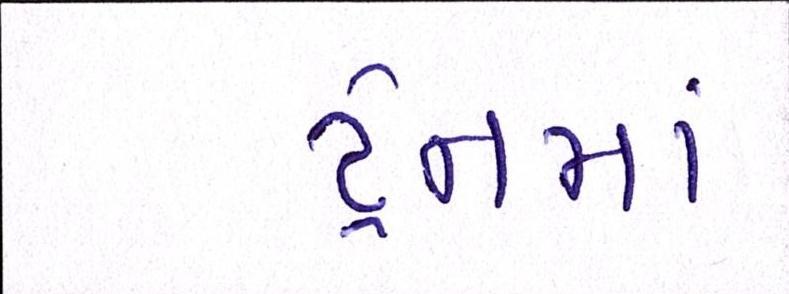 ટ્રેનમાં